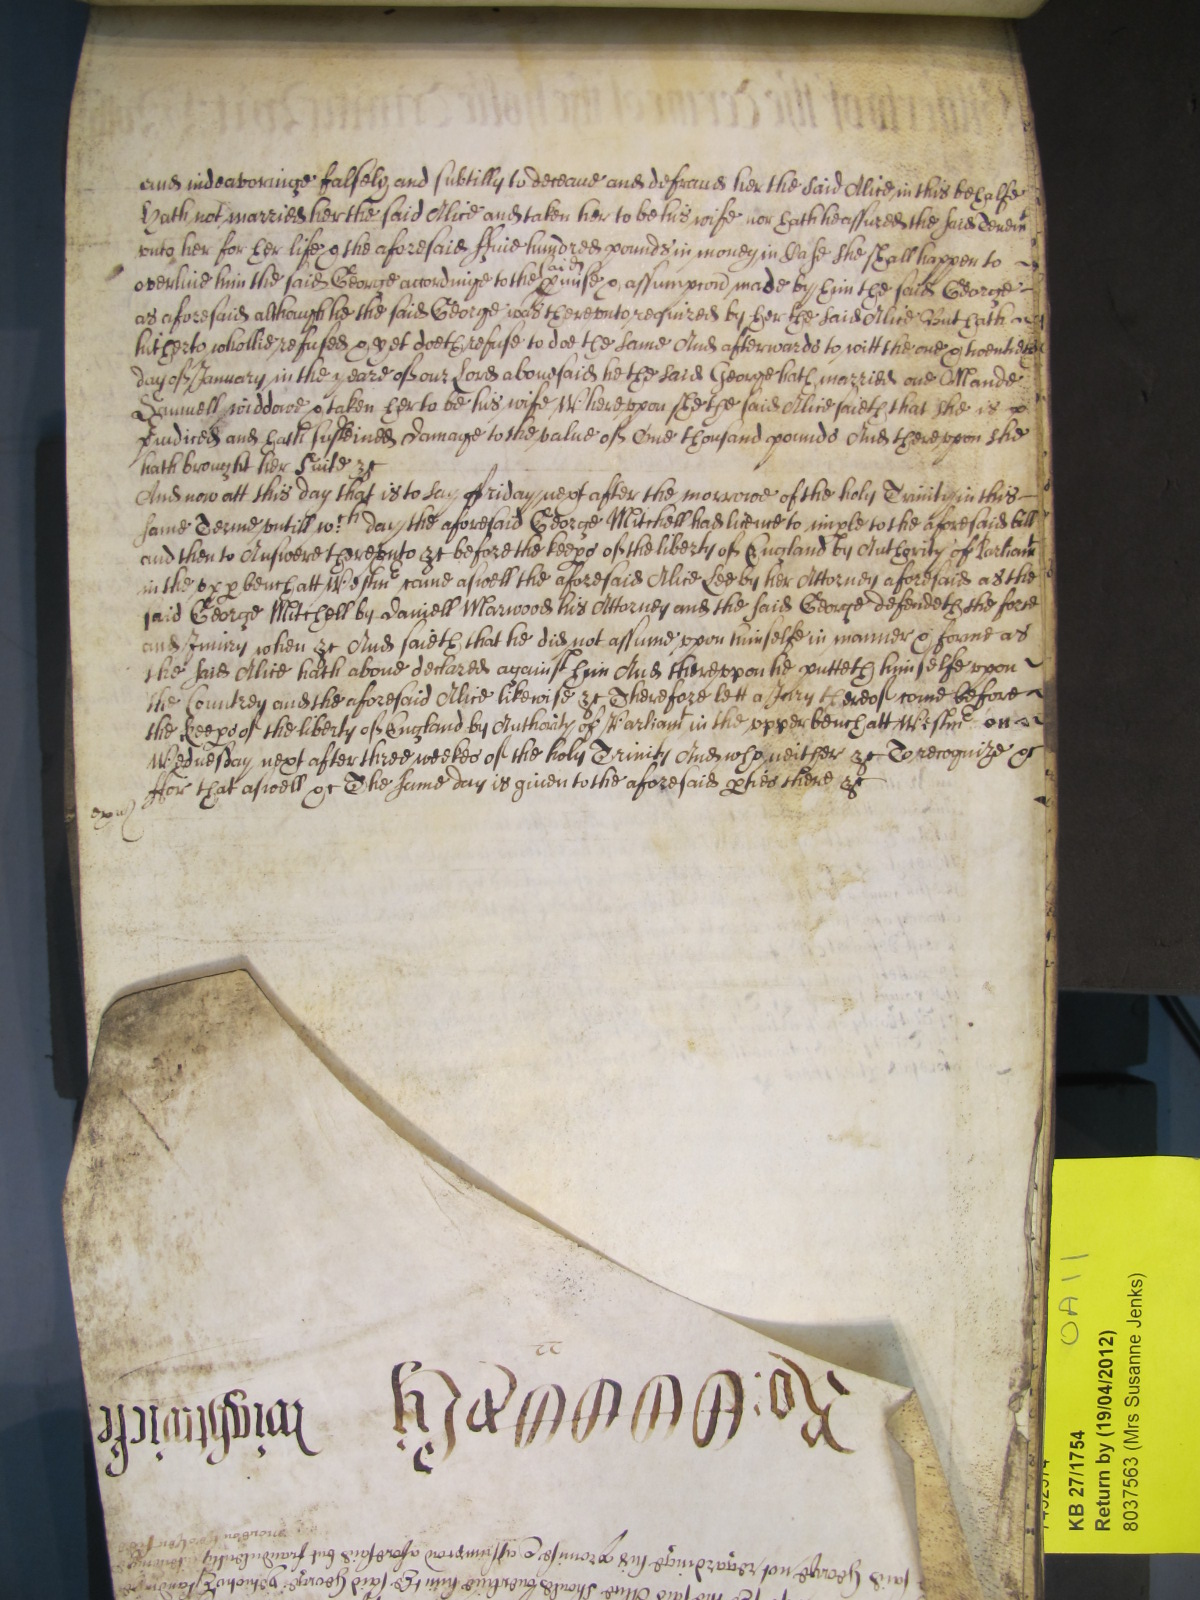 and indeavoringe falsely and subtilly to deceaue and defraud her the said Alice in this behalfe
hath not married her the said Alice and taken her to be his wife nor hath he assured the said
vnto her for her life & the aforesaid ffiue hundred pounds in money in Case she shall happen to
overliue him the said George accordinge to the said pmise & assumpcon made by him the said George
as aforesaid although he the said George was therevnto required by her the said Alice But hath
hitherto whollie refused & yet doeth refuse to doe the same And afterwards to witt the one & twentieth
day of January in the yeare of our Lord abouesaid he the said George hath married one Maude
Samwell widdowe & taken her to be his wife Wherevpon she the said Alice saieth that she is p
iudiced and hath susteined damage to the value of One thousand pounds And therevpon she
hath brought her suite &c
And now att this day that is to say ffriday next after the morrowe of the holy Trinity in this
same Terme vntill wch day the aforesaid George Mitchell had licence to imple to the aforesaid bill
and then to Answere therevnto &c before the keeps of the liberty of England by Authority of Parliamt
in the vpp bench att Westm came aswell the aforesaid Alice Lee by her Attorney aforesaid as the
said George Mitchell by Daniell Marwood his Attorney and the said George defendeth the force
and Iniury when &c And saieth that he did not assume vpon himselfe in manner & forme as
the said Alice hath aboue declared against him And therevpon he putteth himselfe vpon
the Countrey and the aforesaid Alice likewise &c Therefore lett a Jury thereof come before
the keeps of the liberty of England by Authority of Parliamt in the vpper bench att Westm on
Wednesday next after three weekes of the holy Trinity And who neither &c To recognize &c
ffor that aswell &c The same day is given to the aforesaid pties there &c
22
Wightwicke
said George not regardinge his promise & assumpcon aforesaid but fraudulently
the said Alice should overliue him the said George
KB 27/1754
Return by (19/04/2012)
8037563 (Mrs Susanne Jenks)
OA 11